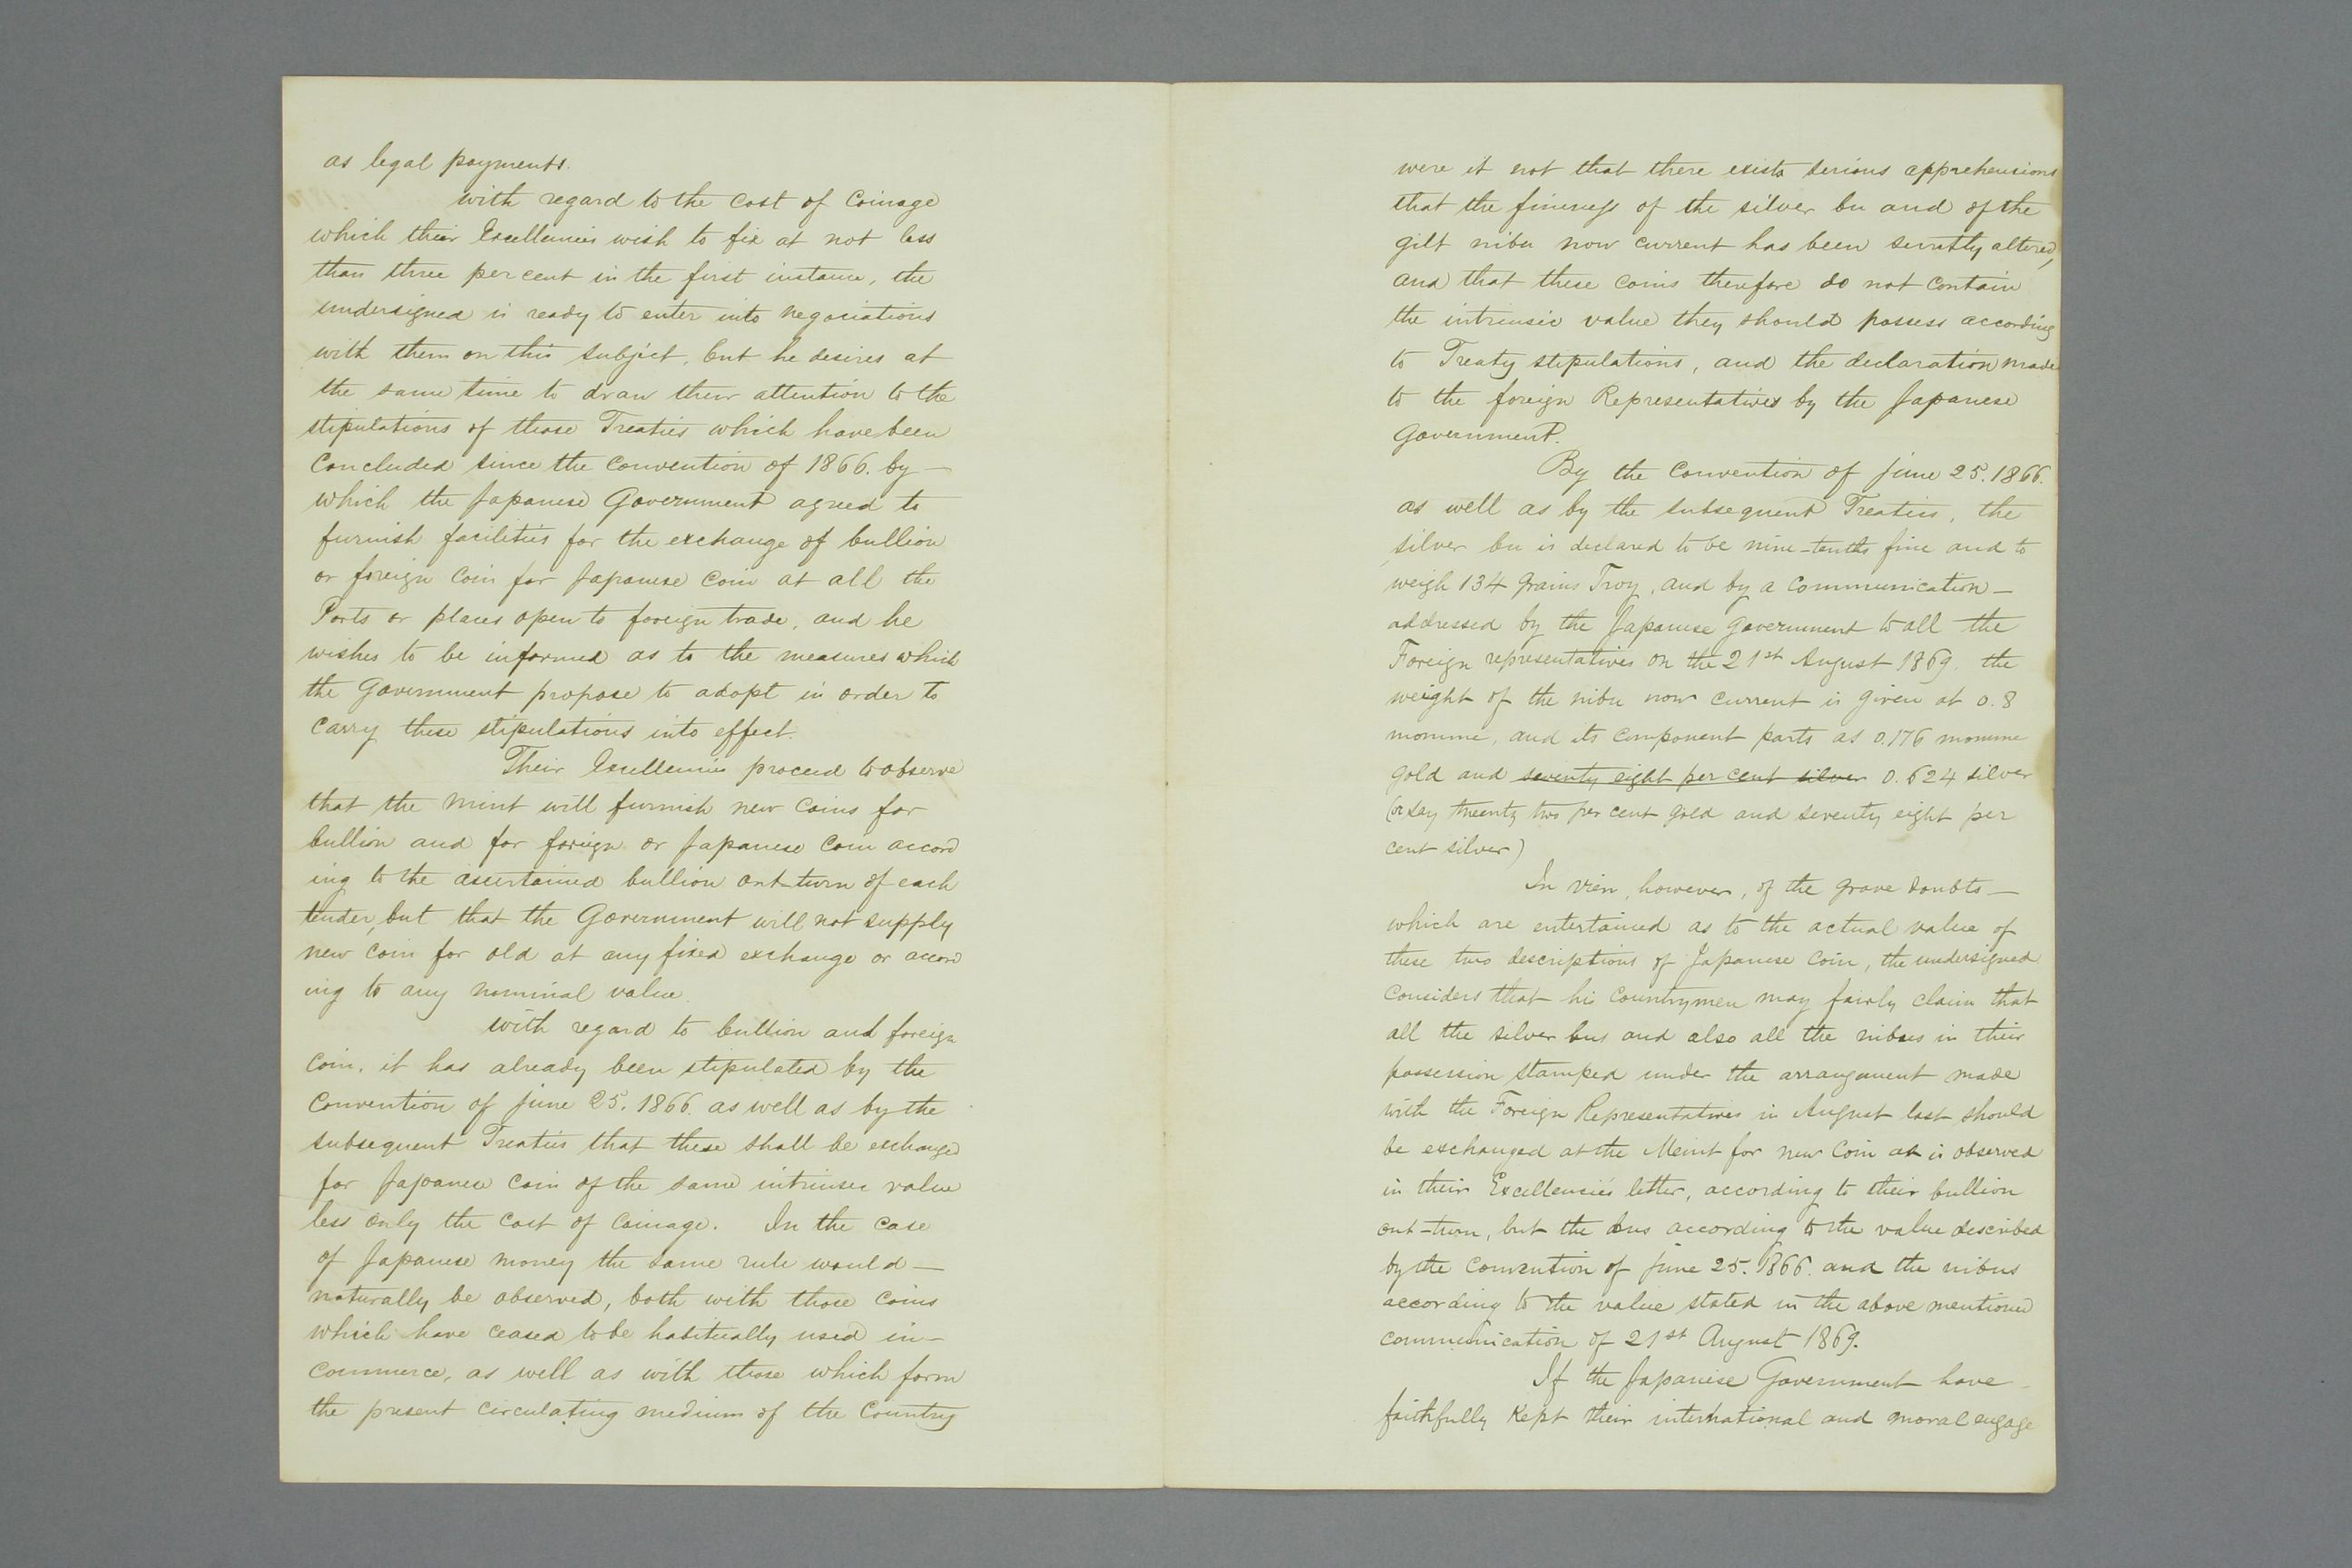 as legal payments.
With regard to the cost of Coinage
which their Excellencies wish to fix at not less
than three per cent in the first instance, the
undersigned is ready to enter into negociations
with them on this subject, but he desires at
the same time to draw their attention to the
stipulations of those Treaties which have been
concluded since the Convention of 1866. by —
which the Japanese Government agreed to
furnish facilities for the exchange of bullion
or foreign Coin for Japanese Coin at all the
Ports or places open to foreign trade, and he
wishes to be informed as to the measures which
the Government propose to adopt in order to
carry these stipulations into effect.
Their Excellencies proceed to observe
that the Mint will furnish new Coins for
bullion and for foreign or Japanese Coin accord
ing to the ascertained bullion out-turn of each
tender, but that the Government will not supply
new Coin for old at any fixed exchange or accord
ing to any nominal value.
With regard to bullion and foreign
Coin, it has already been stipulated by the
Convention of June 25. 1866. as well as by the
subsequent Treaties that these shall be exchanged
for Japanese Coin of the same intrinsic value
less only the Cost of Coinage. In the case
of Japanese money the same rule would —
naturally be observed, both with those Coins
which have ceased to be habitually used in —
Commerce, as well as with those which form
the present Circulating medium of the Country
were it not that there exists serious apprehensions
that the fineness of the silver bu and of the
gilt nibu now current has been secretly altered,
and that these Coins therefore do not Contain
the intrinsic value they should possess according
to Treaty stipulations, and the declaration made
to the foreign Representatives by the Japanese
Government.
By the Convention of June 25. 1866.
as well as by the subsequent Treaties, the
silver bu is declared to be nine-tenths fine and to
weigh 134 grains Troy, and by a Communication —
addressed by the Japanese Government to all the
Foreign representatives on the 21st August 1869. the
weight of the nibu now current is given at 0.8
momme, and its Component parts as 0.176 momme
gold and seventy eight per cent silver 0.624 silver
(or say twenty two per cent gold and seventy eight per
cent silver)
In view, however, of the grave doubts —
which are entertained as to the actual value of
these two descriptions of Japanese Coin, the undersigned
Considers that his Countrymen may fairly claim that
all the silver bus and also all the nibus in their
possession stamped under the arrangement made
with the Foreign Representatives in August last should
be exchanged at the Meint for new Coin as is observed
in their Excellencies letter, according to their bullion
out-turn, but the bus according to the value described
by the Convention of June 25. 1866. and the nibus
according to the value stated in the above mentioned
communication of 21st August 1869.
If the Japanese Government have
faithfully kept their international and moral engage